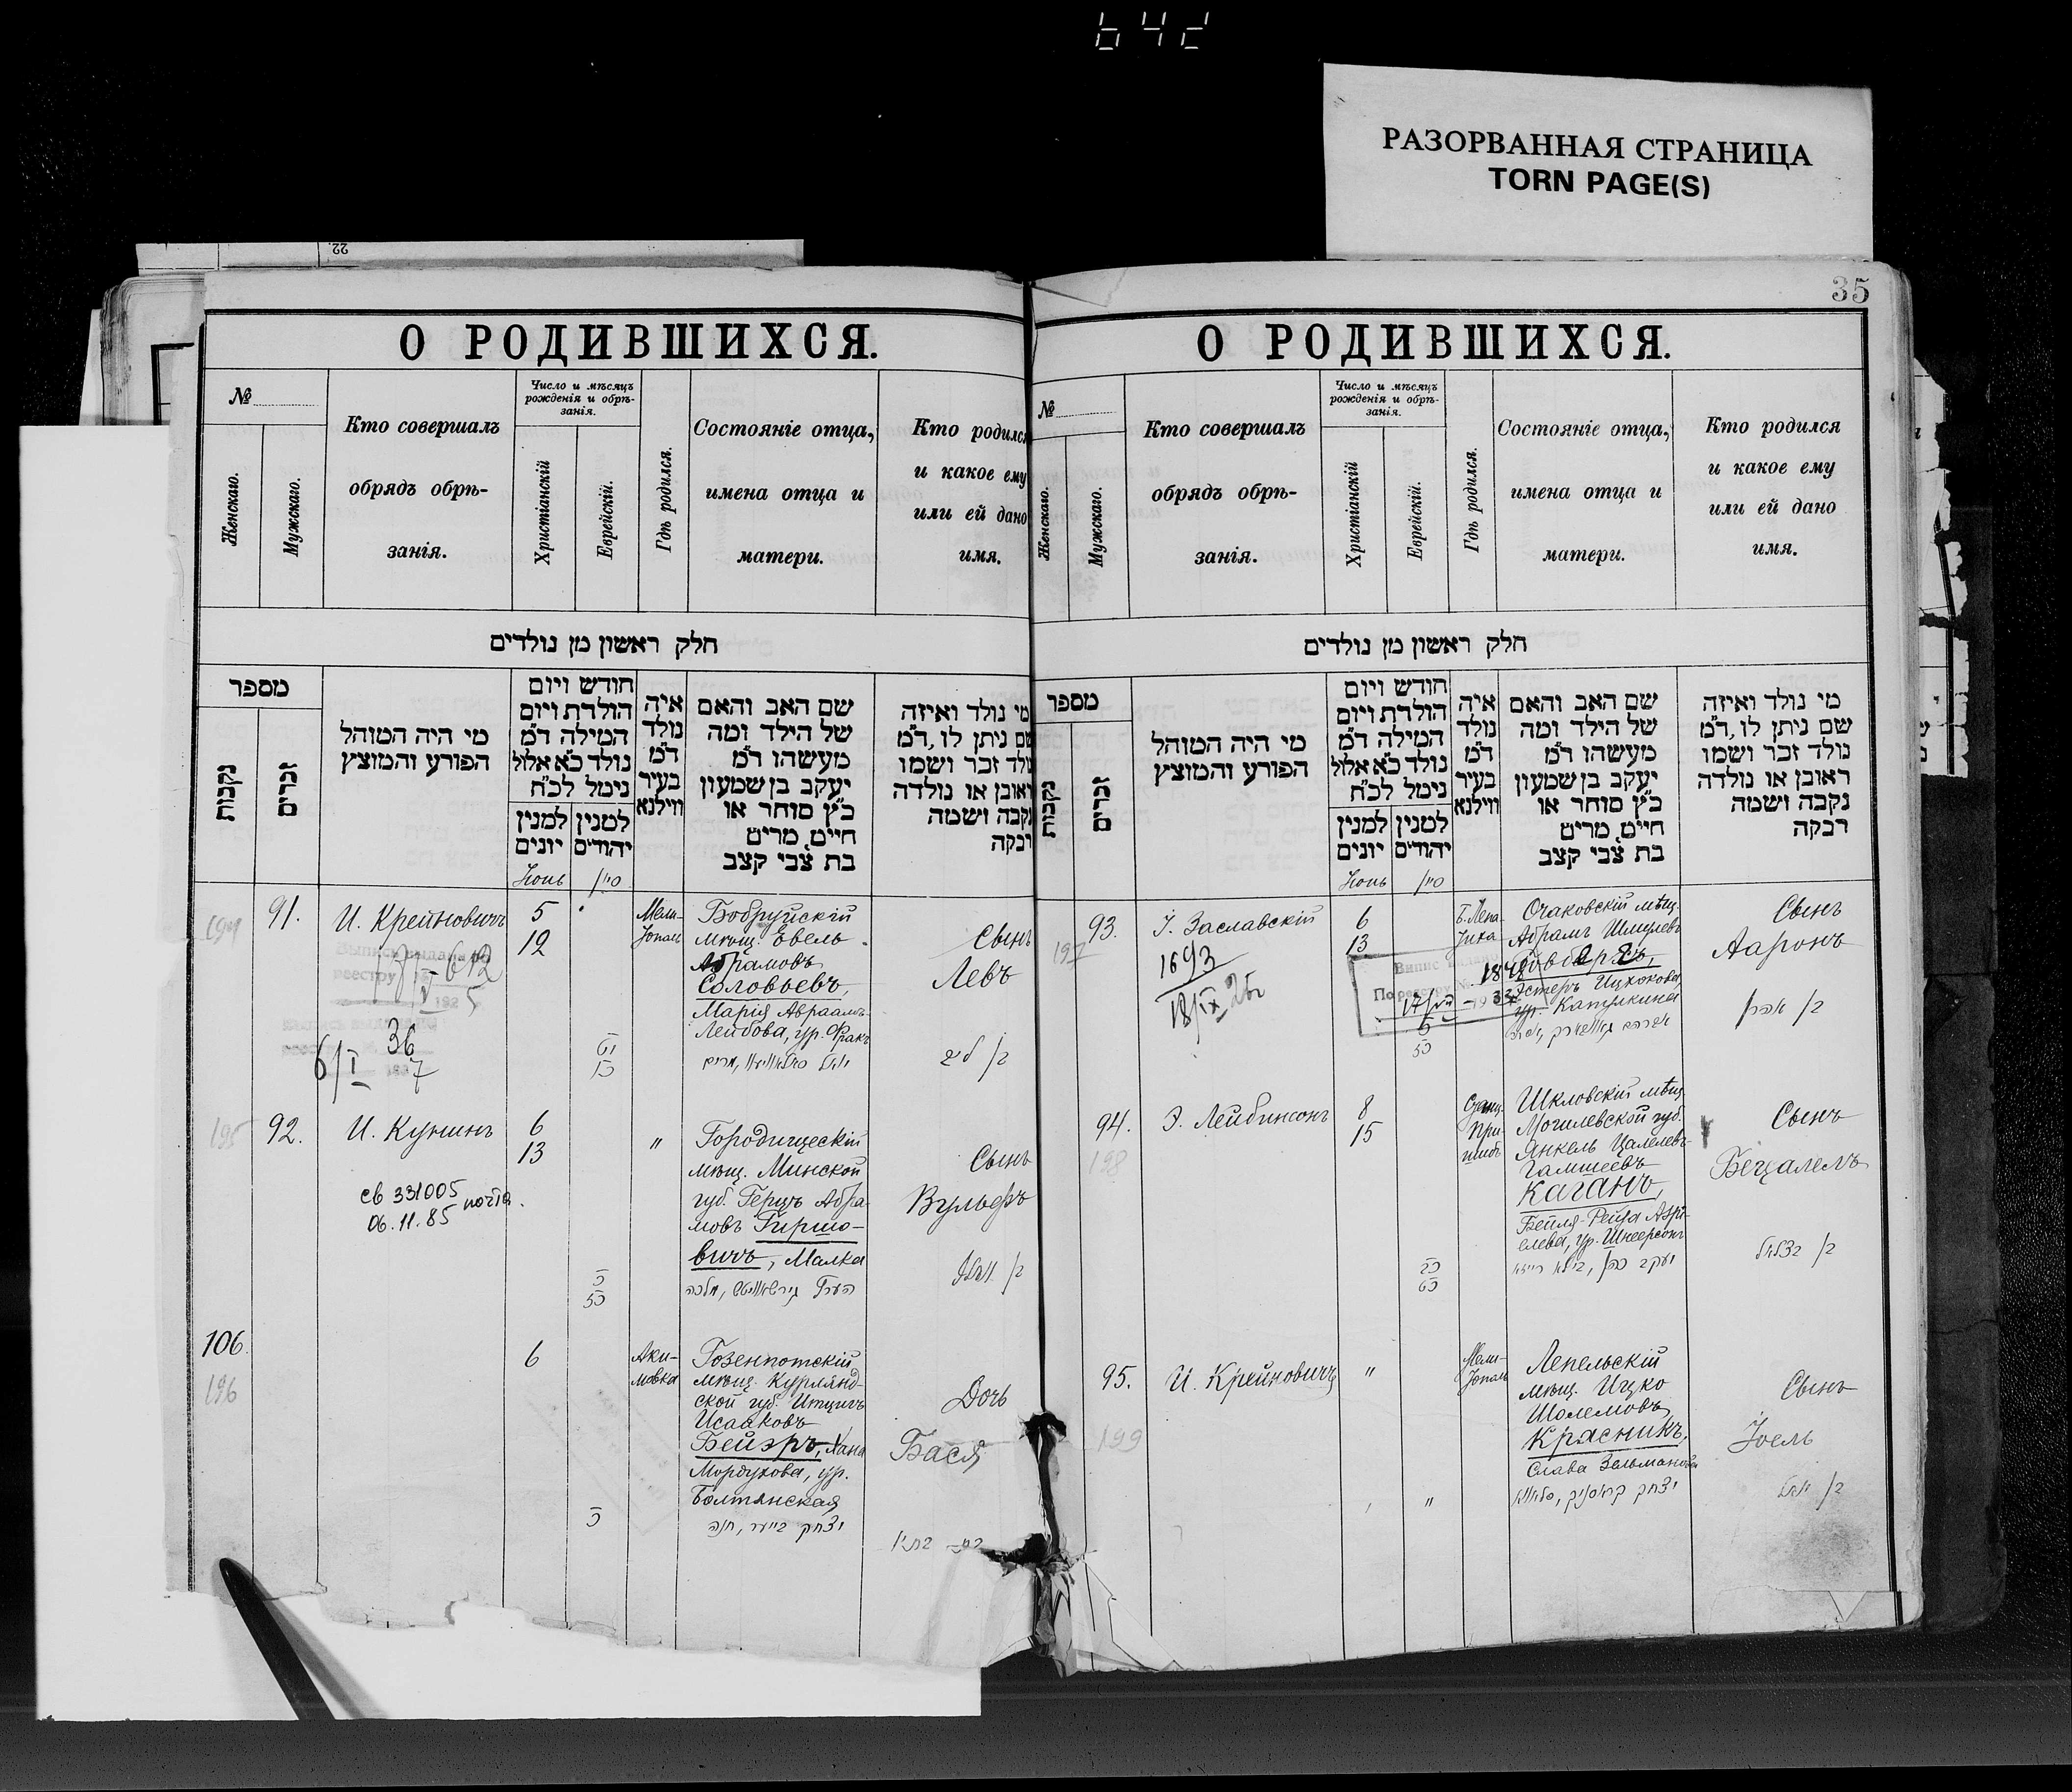 642
РАЗОРВАННАЯ СТРАНИЦА
TORN PAGE(S)
22.
35
О РОДИВШИХСЯ.
№
Женскаго.
Мужскаго.
Кто совершалъ
обрядъ обрѣ-
занія.
Число и мѣсяцъ
рожденія и обрѣ-
занія.
Христіанскій
Еврейскій.
Гдѣ родился.
Состояніе отца,
имена отца и
матери.
Кто родился
и какое ему
или ей дано
имя.
חלק ראשון מן נולדים
מספר
נקבות
זכרים
מי היה המוהל
הפורע והמוצץ
חודש ויום
הולדת ויום
המילה ד״מ
נולד כ״א אלול
נימל לכ״ח
למנין
יונים
למנין
יהודים
איה
נולד
ד״מ
בעיר
ווילנא
שם האב והאם
של הילד ומה
מעשהו ד״מ
יעקב בן שמעון
כ״ץ סוחר או
חיים, מרים
בת צבי קצב
מי נולד ואיזה
שם ניתן לו, ד״מ
נולד זכר ושמו
ראובן או נולדה
נקבה ושמה
רבקה
Іюнь
סיון
194
91.
И. Крейновичъ
5
12
Мели-
тополь
Бобруйскій
мѣщ. Евель
Абрамовъ
Соловьевъ,
Марія Авраамъ-
Лейбова, ур. Фракъ
Сынъ
Левъ
36
6/I
7
195
92.
И. Кунинъ
6
13
"
Городищескій
мѣщ. Минской
губ. Герцъ Абра-
мовъ Гиршо-
вичъ, Малка
Сынъ
Вульфъ
св 331005
06.11.85 почта.
106.
196
6
Аки-
мовка
Газенпотскій
мѣщ. Курлянд-
ской губ. Итцигъ
Исааковъ
Бейэръ, Хана
Мордухова, ур.
Болтянская
יצחק בייער, חנה
Дочь
Бася
О РОДИВШИХСЯ.
№
Женскаго.
Мужскаго.
Кто совершалъ
обрядъ обрѣ-
занія.
Число и мѣсяцъ
рожденія и обрѣ-
занія.
Христіанскій
Еврейскій.
Гдѣ родился.
Состояніе отца,
имена отца и
матери.
Кто родился
и какое ему
или ей дано
имя.
חלק ראשון מן נולדים
מספר
נקבות
זכרים
מי היה המוהל
הפורע והמוצץ
חודש ויום
הולדת ויום
המילה ד״מ
נולד כ״א אלול
נימל לכ״ח
למנין
יונים
למנין
יהודים
איה
נולד
ד״מ
בעיר
ווילנא
שם האב והאם
של הילד ומה
מעשהו ד״מ
יעקב בן שמעון
כ״ץ סוחר או
חיים, מרים
בת צבי קצב
מי נולד ואיזה
שם ניתן לו, ד״מ
נולד זכר ושמו
ראובן או נולדה
נקבה ושמה
רבקה
Іюнь
סיון
197
93.
І. Заславскій
6
13
Б. Лепа-
тиха
Очаковскій мѣщ.
Абрамъ Шмулевъ
Эстеръ Ицхокова,
ур. Капулкина
Сынъ
Ааронъ
1693
94.
198
Э. Лейбинсонъ
8
15
Шкловскій мѣщ.
Могилевской губ.
Янкель Цалелевъ-
Гамшеевъ
Каганъ,
Бейля-Рейза Азрі-
елева, ур. Шнеерсонъ
יעקב כהן, ביילא רייזא
Сынъ
Бецалель
95.
199
И. Крейновичъ
"
Мели-
тополь
Лепельскій
мѣщ. Ицко
Шолемовъ
Красникъ,
Слава Зельманова
Сынъ
Іоель